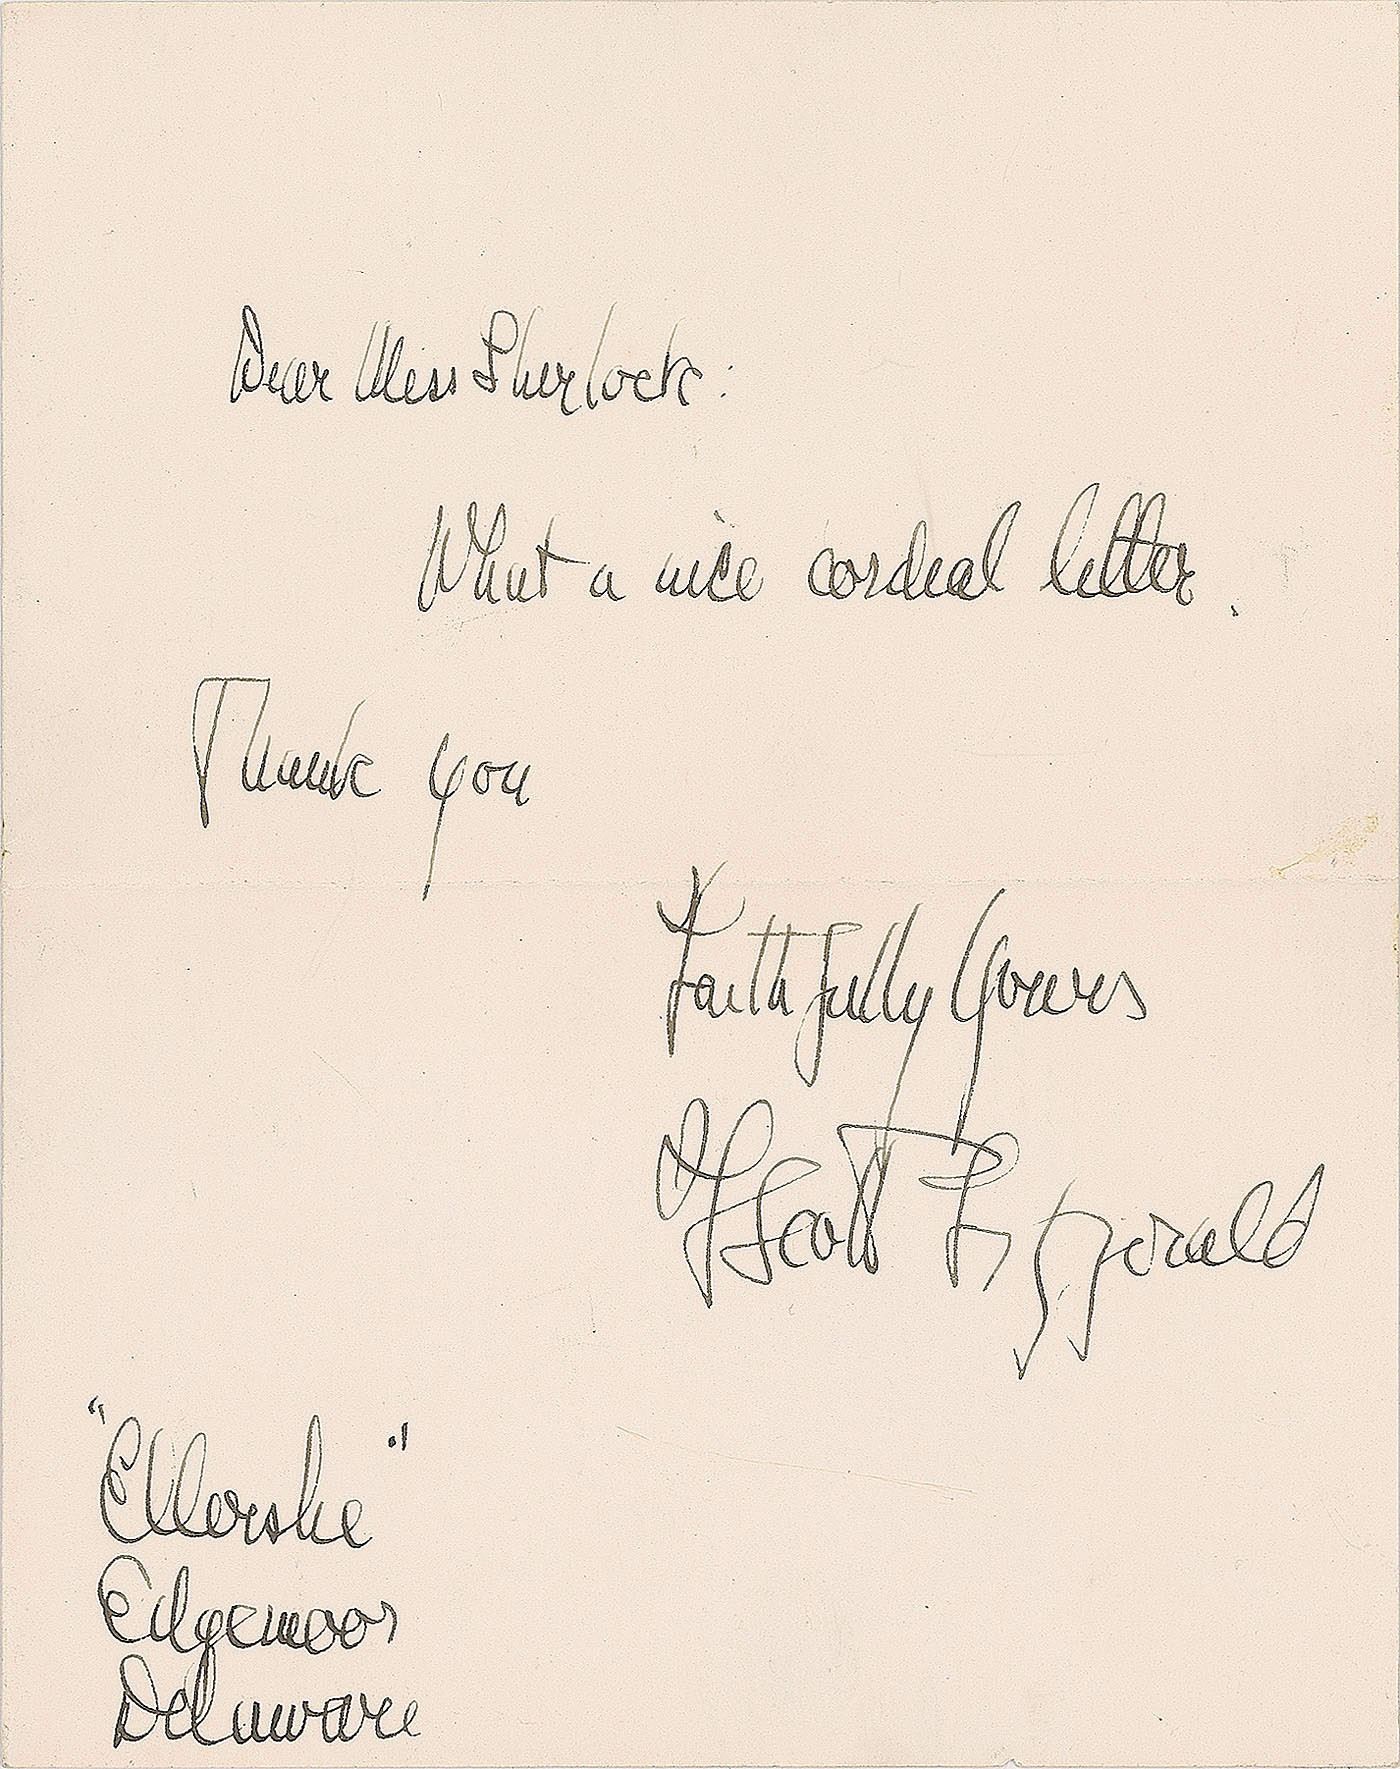 Dear Miss Sherlock:
What a nice cordial letter.
Thank you
Faithfully Yours
F Scott Fitzgerald
"Ellerslie"
Edgemoor
Delaware